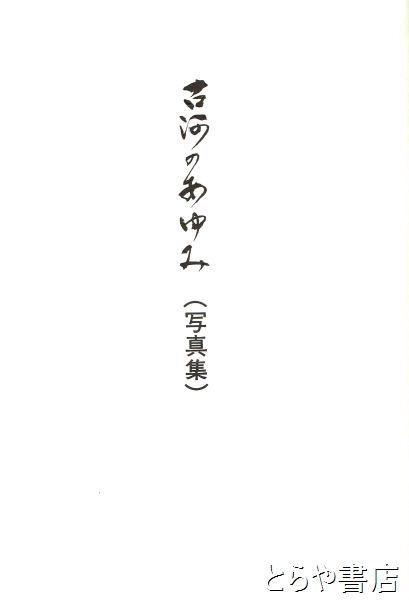 古河のあゆみ
(写真集)
とらや書店